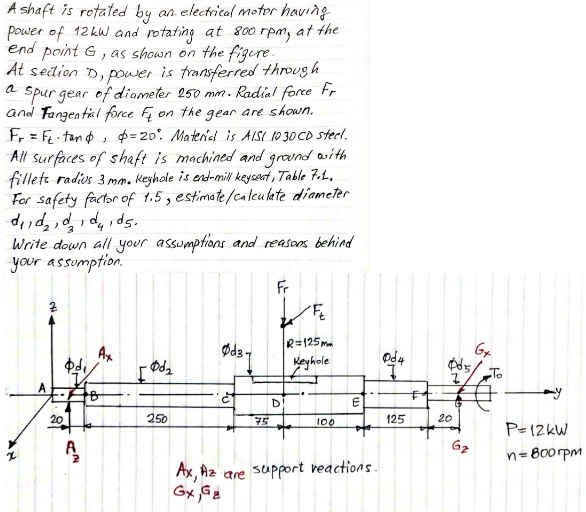 A shaft is rotated by an electrical motor having
power of 12 kW and rotating at 800 rpm, at the
end point G, as shown on the figure.
At section D, power is transferred through
a spur gear of diameter 250 mm. Radial force Fr
and Tangential force Ft on the gear are shown.
Fr = Ft . tan ϕ , ϕ = 20°. Material is AISI 1030 CD steel.
All surfaces of shaft is machined and ground with
fillets radius 3 mm. Keyhole is end-mill keyseat, Table 7.1.
For safety factor of 1.5, estimate/calculate diameter
d1, d2, d3, d4, d5.
Write down all your assumptions and reasons behind
your assumption.
Fr
Ft
z
R=125mm
Keyhole
Ax
Ød1
Ød2
Ød3
Ød4
Ød5
Gx
To
A
B
C
D
E
F
G
y
20
250
75
100
125
20
x
Az
Gz
P=12kW
n=800rpm
Ax, Az are support reactions.
Gx, Gz